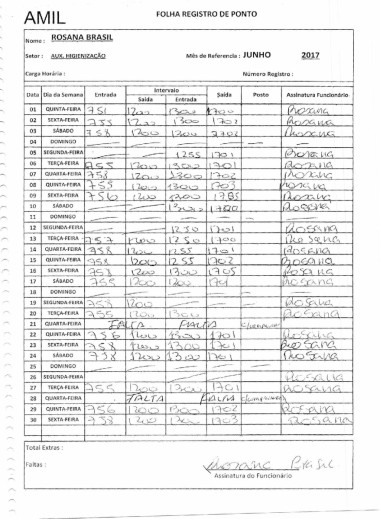 AMIL
FOLHA REGISTRO DE PONTO
Nome : ROSANA BRASIL
Setor : AUX. HIGIENIZAÇÃO Mês de Referencia : JUNHO 2017
Carga Horária : Número Registro :
Data Dia da Semana Entrada Intervalo Saída Entrada Saída Posto Assinatura Funcionário
01 QUINTA-FEIRA 751 1200 1300 1700 Rosana
02 SEXTA-FEIRA 755 1200 1300 1702 Rosana
03 SÁBADO 758 1200 1300 1702 Rosana
04 DOMINGO
05 SEGUNDA-FEIRA 1255 1701 Rosana
06 TERÇA-FEIRA 755 1200 1300 1701 Rosana
07 QUARTA-FEIRA 758 1200 1300 1702 Rosana
08 QUINTA-FEIRA 755 1200 1300 1703 Rosana
09 SEXTA-FEIRA 756 1200 1300 1705 Rosana
10 SÁBADO 1300 1700 Rosana
11 DOMINGO
12 SEGUNDA-FEIRA 1250 1701 Rosana
13 TERÇA-FEIRA 757 1200 1250 1700 Rosana
14 QUARTA-FEIRA 755 1200 1255 1701 Rosana
15 QUINTA-FEIRA 758 1200 1255 1702 Rosana
16 SEXTA-FEIRA 758 1200 1300 1705 Rosana
17 SÁBADO 758 1200 1200 1701 Rosana
18 DOMINGO
19 SEGUNDA-FEIRA 758 1200 Rosana
20 TERÇA-FEIRA 755 1200 1300 1701 Rosana
21 QUARTA-FEIRA FALTA FALTA
22 QUINTA-FEIRA 756 1200 1300 1701 Rosana
23 SEXTA-FEIRA 758 1200 1300 1701 Rosana
24 SÁBADO 758 1200 1300 1701 Rosana
25 DOMINGO
26 SEGUNDA-FEIRA Rosana
27 TERÇA-FEIRA 755 1200 1300 1701 Rosana
28 QUARTA-FEIRA FALTA FALTA
29 QUINTA-FEIRA 756 1200 1300 1702 Rosana
30 SEXTA-FEIRA 758 1200 1300 1703 Rosana
Total Extras :
Faltas : Rosana Brasil
Assinatura do Funcionário